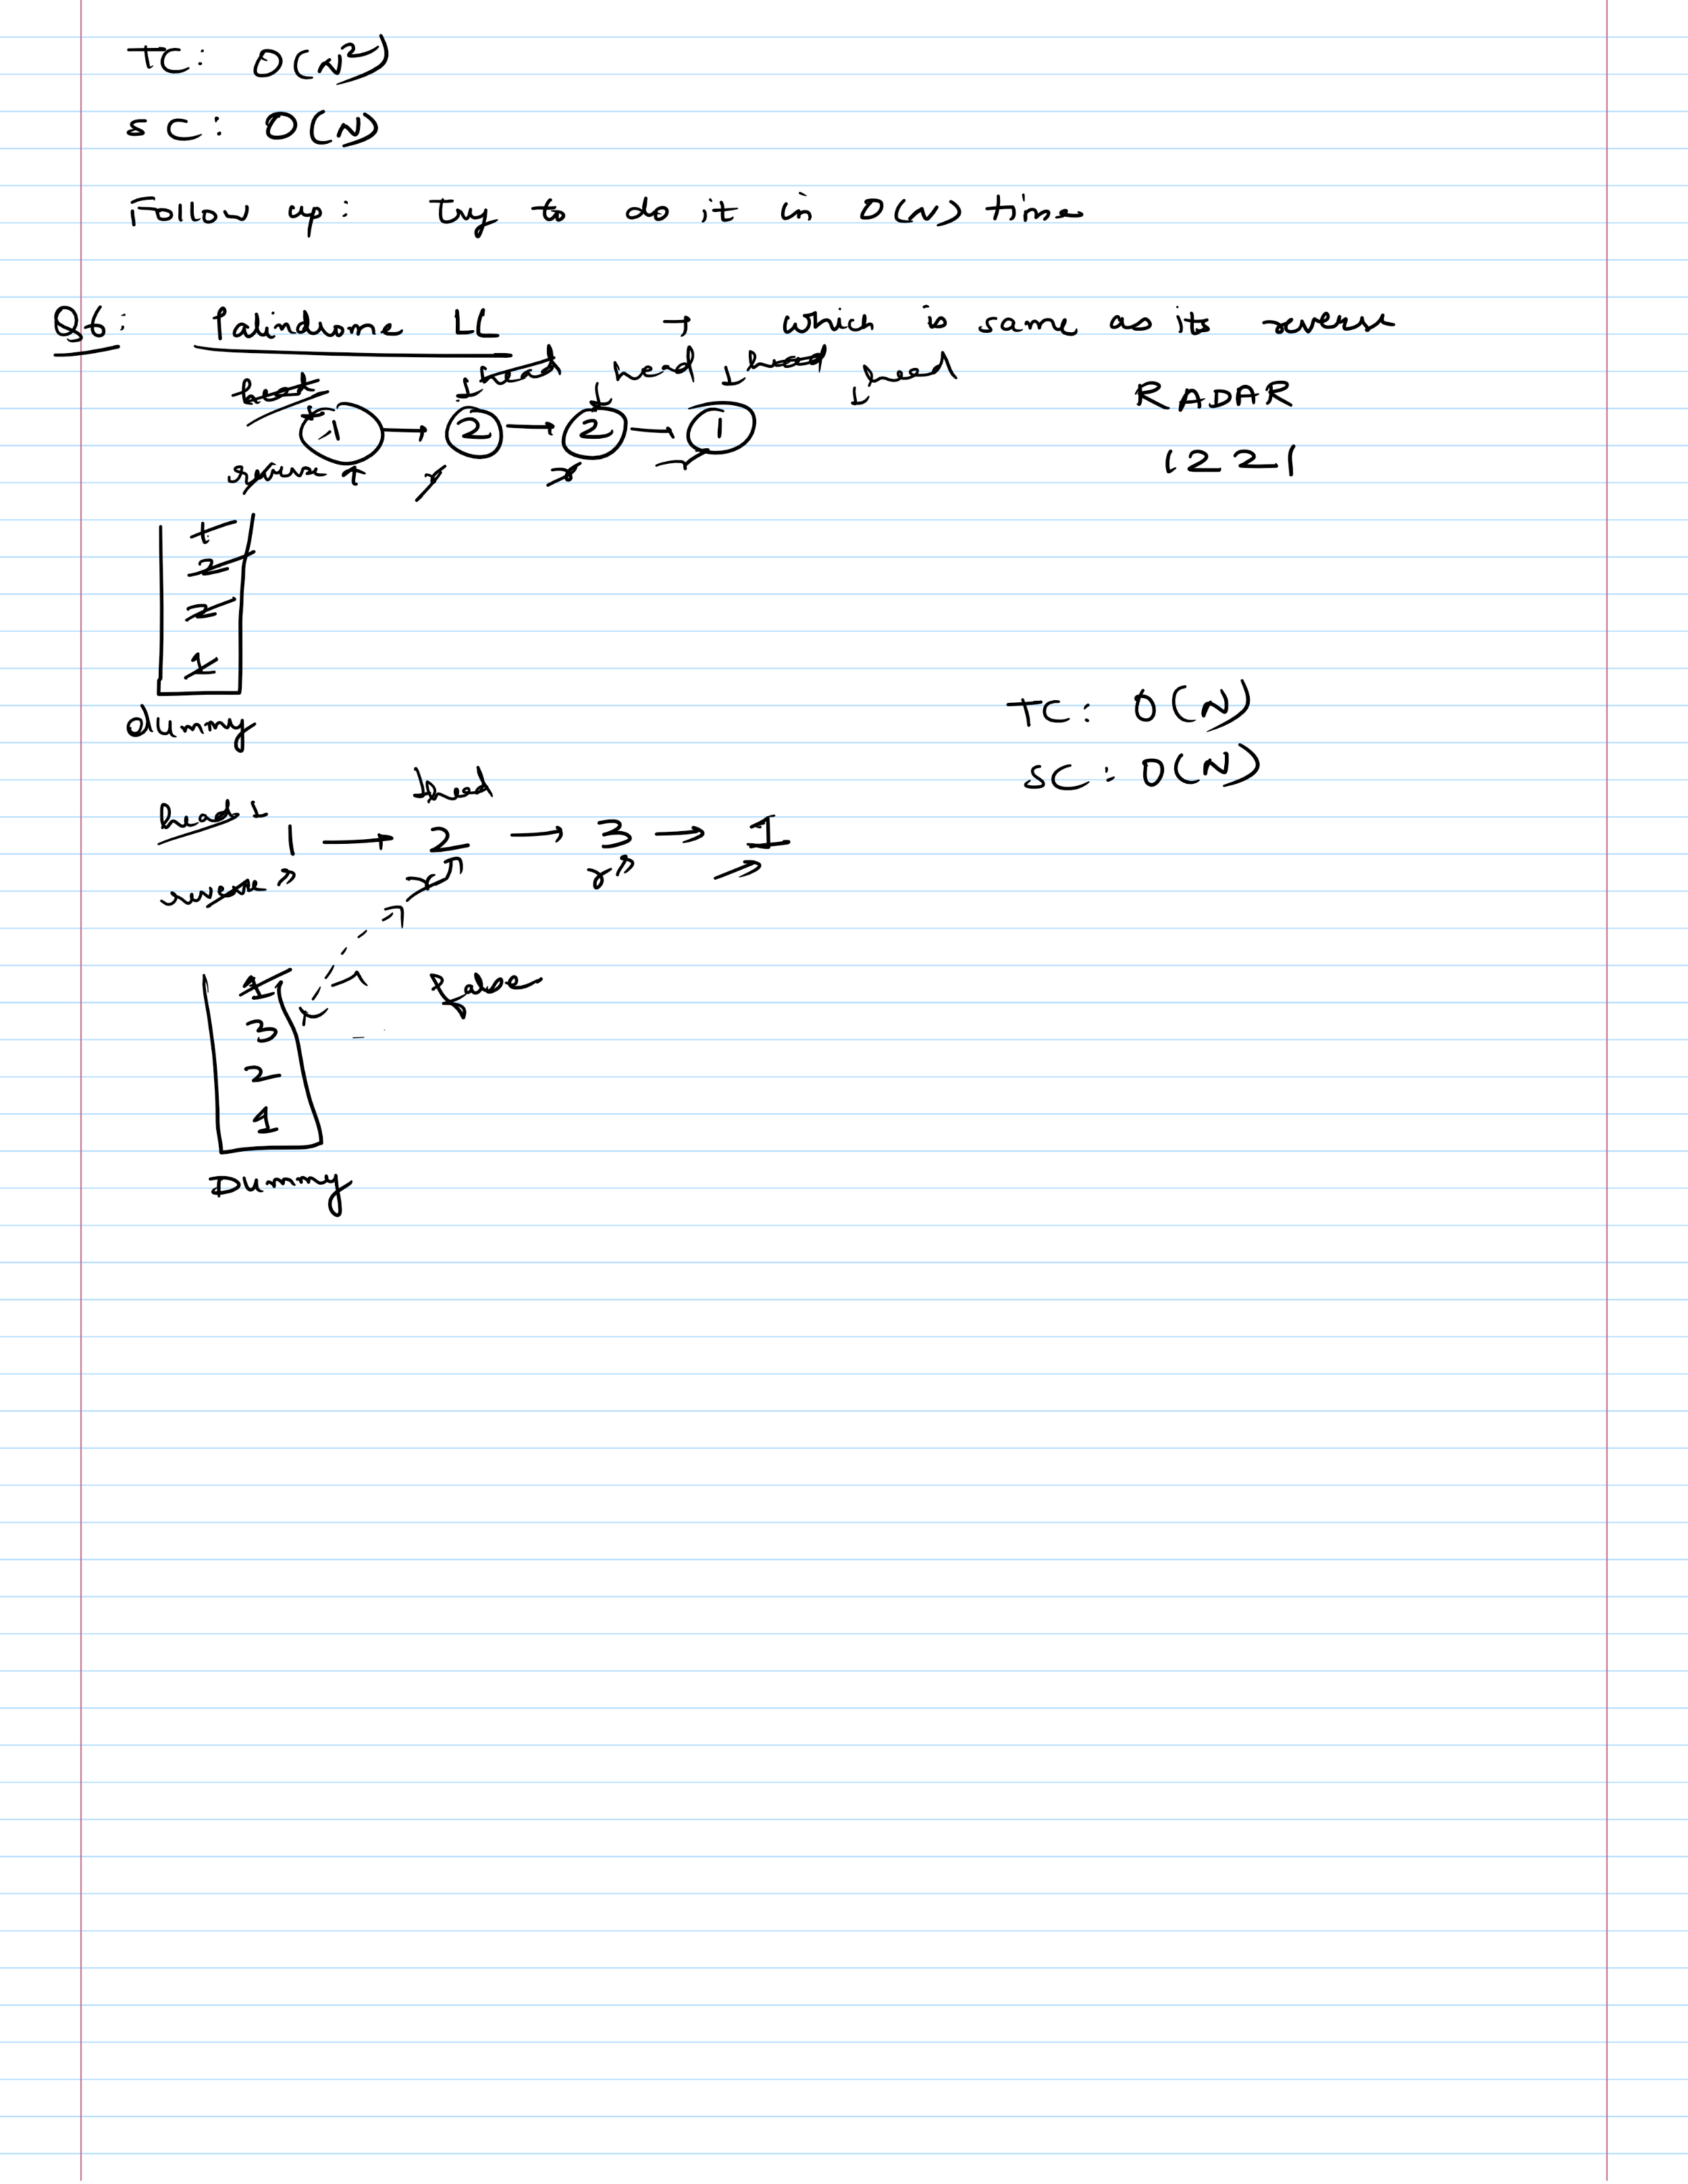 TC: O(N²)
SC: O(N)
Follow up: try to do it in O(N) time
Q6: Palindrome LL → which is same as its reverse
head ↓head ↓head ↓head ↓head
1 → 2 → 2 → 1
RADAR
reverse ↑ r r
1221
1
2
2
1
Dummy
TC: O(N)
SC: O(N)
head ↓ ↓head
1 → 2 → 3 → 1
reverse r r
1
3
2
1
false
Dummy